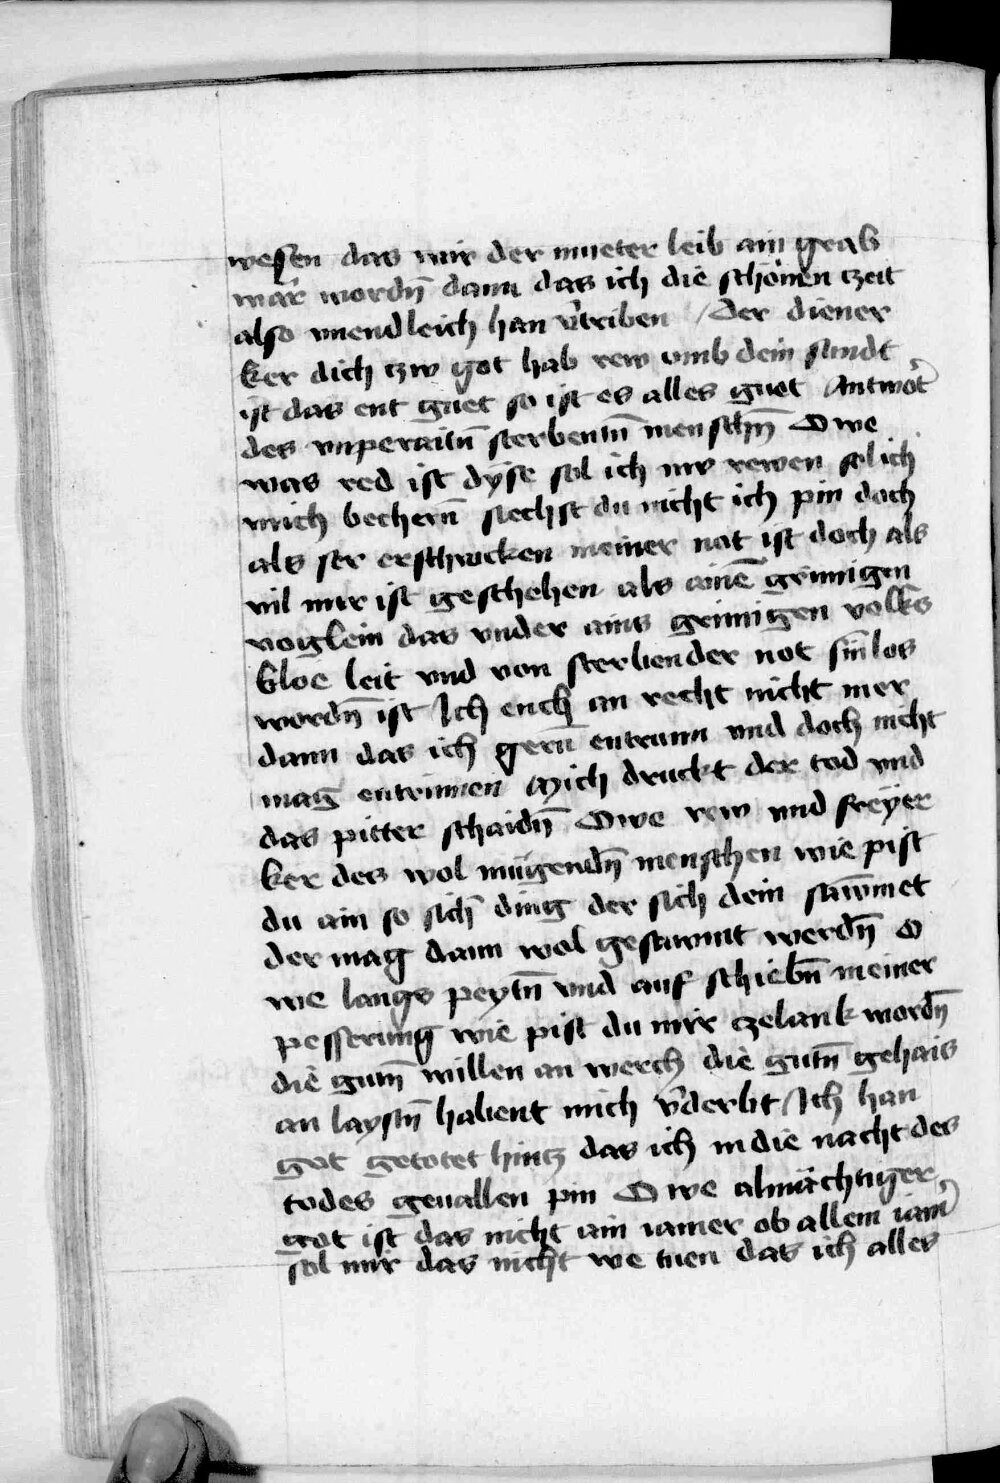 wesen das mir der mueter leib ain grab
wär wordn̄ dann das ich die schönen czeit
also vnendleich han v̄triben / Der diener
ker dich czw got hab rew vmb dein sundt
ist das ent guet so ist es alles guet Antwōt
des vnperaitn̄ sterbentn̄ menschn̄ O we
was red ist dyse sol ich nw rewen sol ich
mich bechern̄ siechst du nicht ich pin doch
als ser erschrocken meiner not ist doch als
vil mir ist geschehen als ainē grimigen
voiglein das vnder ains grimigen volks
kloe leit vnd von sterbender not sin̄los
wordn̄ ist Ich ench an recht nicht mer
dann das ich gern̄ entrunn vnd doch nicht
mag entrinnen Mich druckt der tod vnd
das pitter schaidn̄ O we rew vnd freyer
ker des wol mügendn̄ menschen wie pist
du ain so sich̄ ding der sich dein sawmet
der mag dann wol gesawmt werdn̄ O
we langs peytn̄ vnd auf schiebn̄ meiner
pesserung wie pist du mir czelank wordn̄
die gutn̄ willen an werch die gutn̄ gehais
an laystn̄ habent mich v̄derbt Ich han
got getotet hintz das ich in die nacht des
todes geuallen pin O we almächtiger
got ist das nicht ain iamer ob allem iam̄
sol mir das nicht we tuen das ich alles